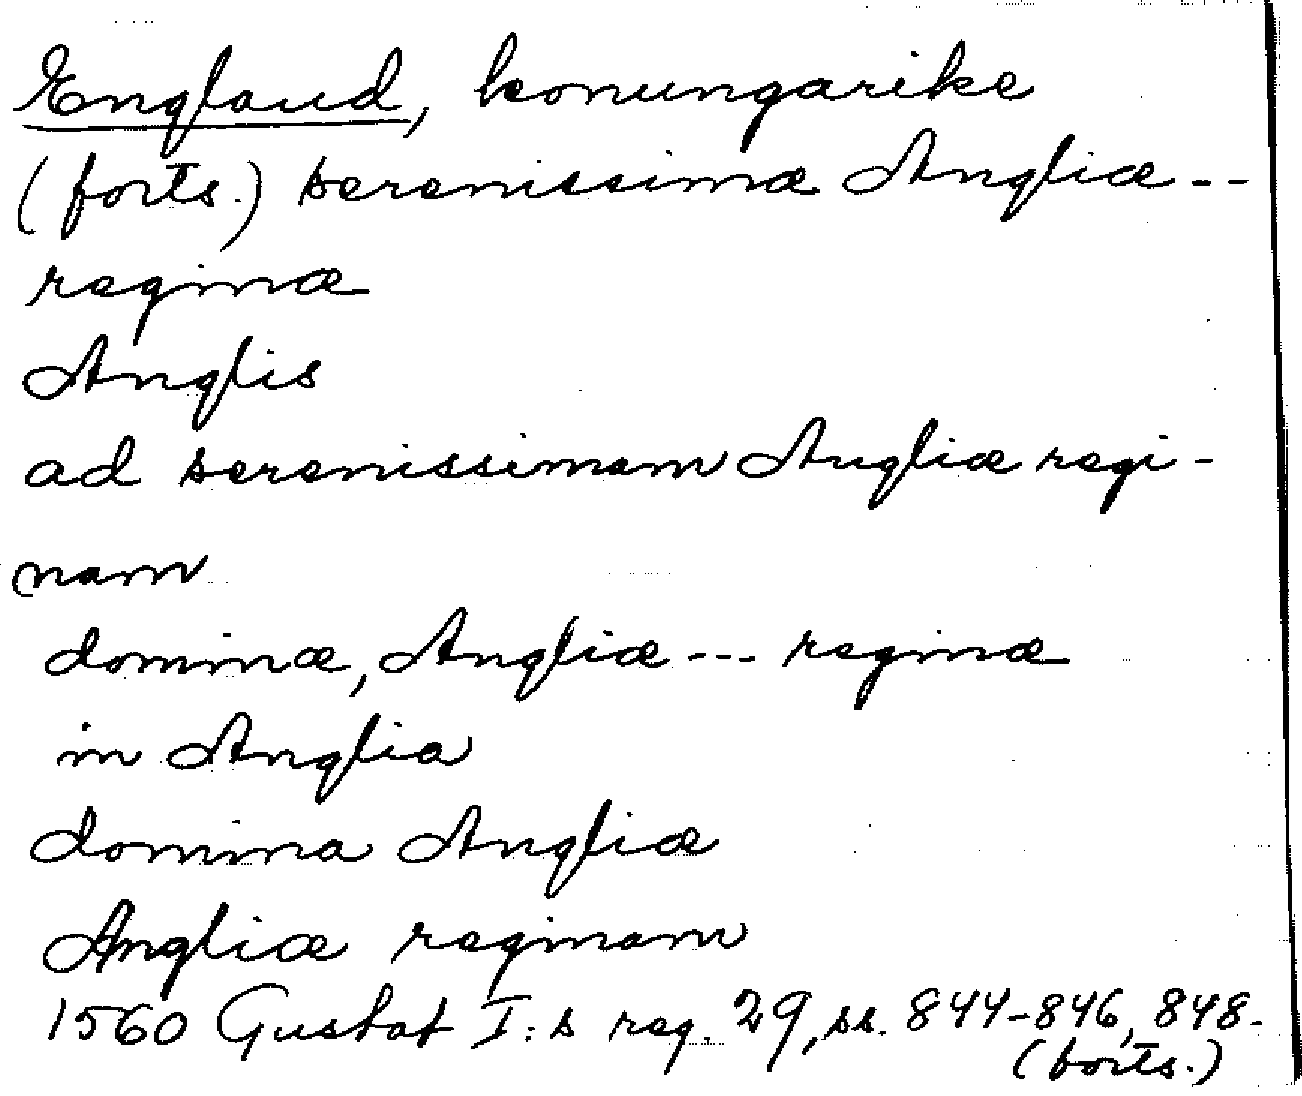 England, konungarike
(forts.) serenissimæ Angliæ --
reginæ
Anglis
ad serenissimam Angliæ regi-
nam
dominæ, Angliæ --- reginæ
in Anglia
domina Angliæ
Angliæ reginam
1560 Gustaf I:s reg. 29, ss. 844-846, 848-
(forts.)